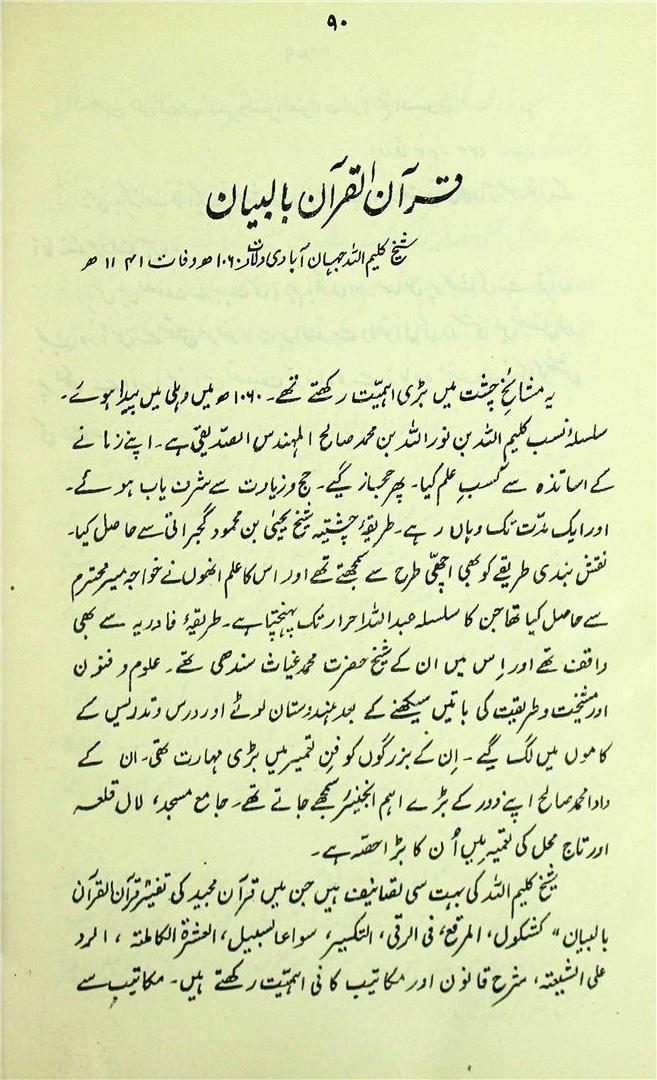 ۹۰
قرآن القرآن بالبیان
شیخ کلیم اللہ جہان آبادی ولادت ۱۰۶۰ھ وفات ۱۱۴۱ھ
یہ مشائخِ چشت میں بڑی اہمیّت رکھتے تھے۔ ۱۰۶۰ھ میں دہلی میں پیدا ہوئے۔
سلسلۂ نسب کلیم اللہ بن نور اللہ بن محمد صالح المہندس الصدیقی ہے۔ اپنے زمانے
کے اساتذہ سے کسبِ علم کیا۔ پھر حجاز گیے۔ حج و زیارت سے شرف یاب ہوئے۔
اور ایک مدّت تک وہاں رہے۔ طریقۂ چشتیہ شیخ یحییٰ بن محمود گجراتی سے حاصل کیا۔
نقش بندی طریقے کو بھی اچھّی طرح سے سمجھتے تھے اور اس کا علم انھوں نے خواجہ میر محترم
سے حاصل کیا تھا جن کا سلسلہ عبداللہ احرار تک پہنچتا ہے۔ طریقۂ قادریہ سے بھی
واقف تھے اور اِس میں ان کے شیخ حضرت محمد غیاث سندھی تھے۔ علوم و فنون
اور مشیخت و طریقت کی باتیں سیکھنے کے بعد ہندوستان لوٹے اور درس و تدریس کے
کاموں میں لگ گیے۔ اِن کے بزرگوں کو فنِ تعمیر میں بڑی مہارت تھی۔ ان کے
دادا محمد صالح اپنے دور کے بڑے اہم انجنیئر سمجھے جاتے تھے۔ جامع مسجد، لال قلعہ
اور تاج محل کی تعمیر میں اُن کا بڑا حصّہ ہے۔
شیخ کلیم اللہ کی بہت سی تصانیف ہیں جن میں قرآن مجید کی تفسیر قرآن القرآن
بالبیان" کشکول، المرقع، فی الرقی، التکسیر، سواء السبیل، العشرۃ الکاملتہ، الرد
علی الشیعتہ، شرح قانون اور مکاتیب کافی اہمیّت رکھتے ہیں۔ مکاتیب سے